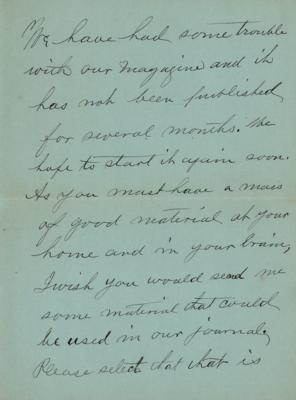 We have had some trouble
with our magazine and it
has not been published
for several months. We
hope to start it again soon.
As you must have a mass
of good material at your
home and in your brain,
I wish you would send me
some material that could
be used in our journal.
Please select that that is